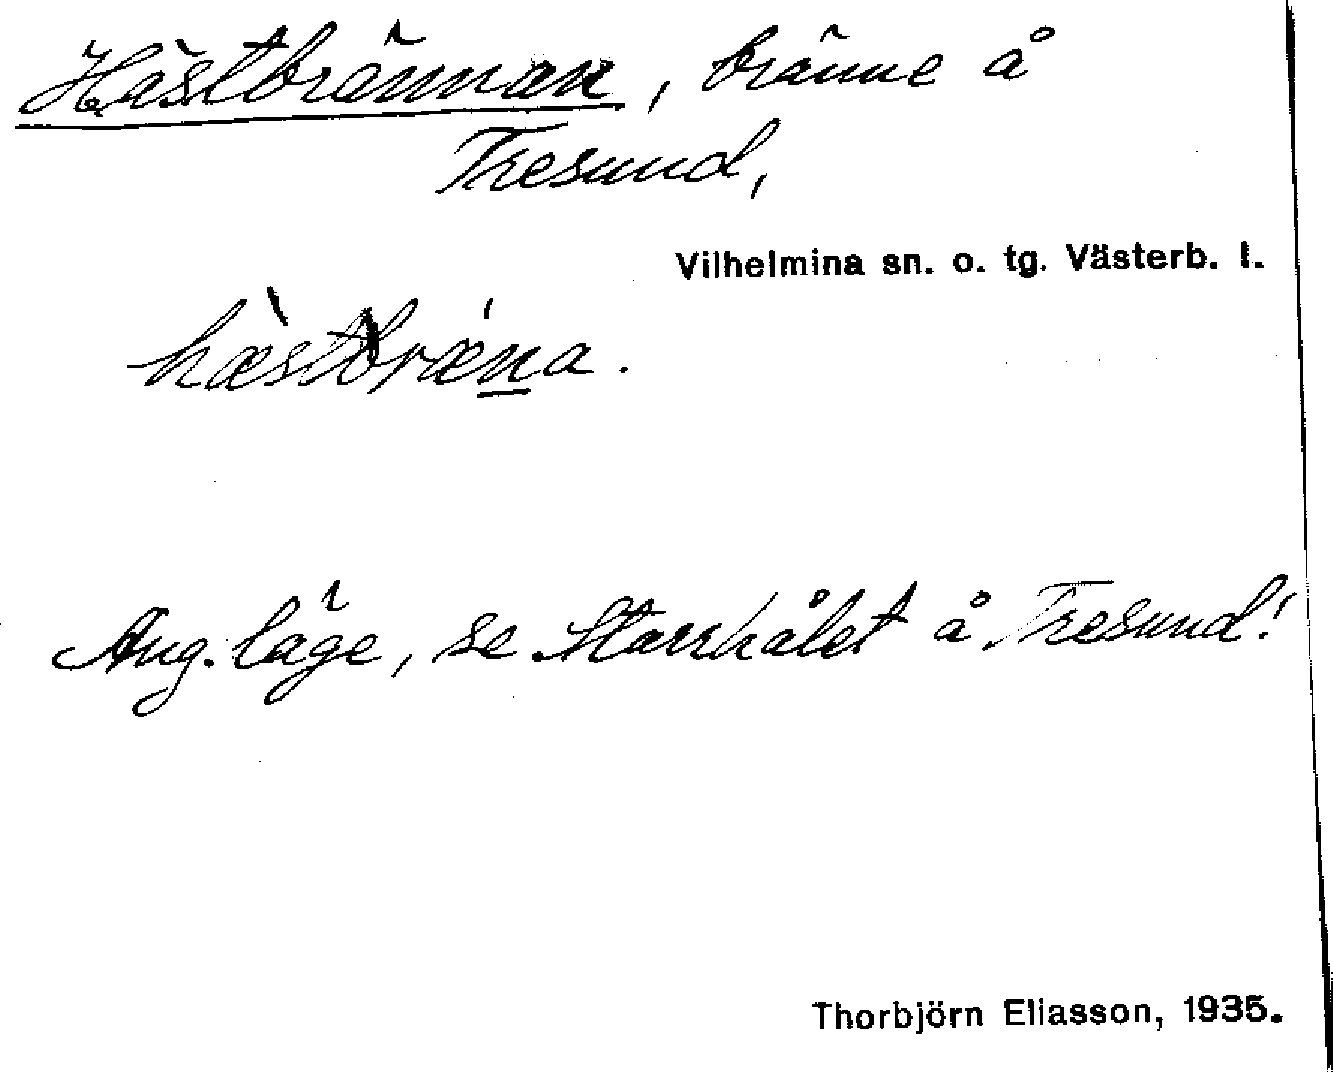 Hästbrännan, bränne å
Tresund,
Vilhelmina sn. o. tg. Västerb. l.
hæ̀stbræ´na.
Ang. läge, se Starrhålet å Tresund!
Thorbjörn Eliasson, 1935.